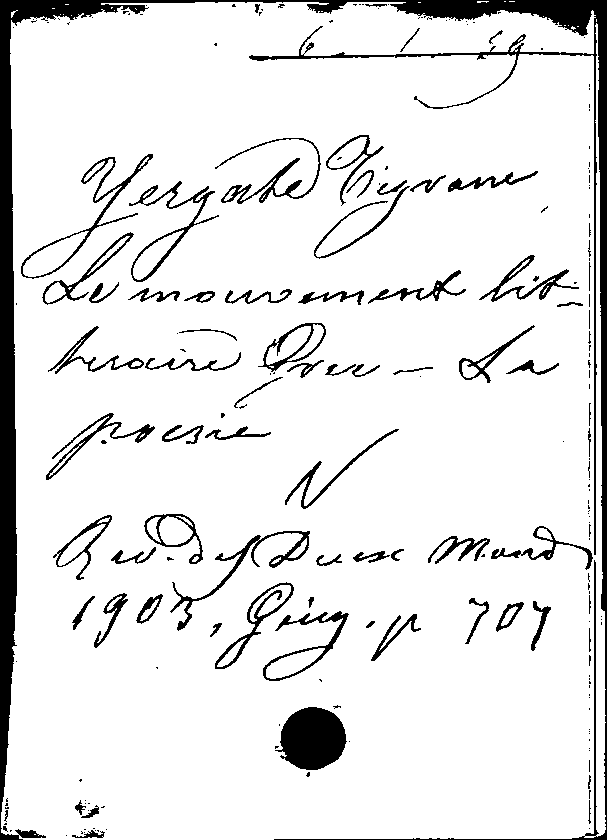 6. 1. 59.
Yergate Tigrane
Le mouvement lit-
teraire Grec - La
poesie
N
Rev. des Deux Mond
1903, p 707